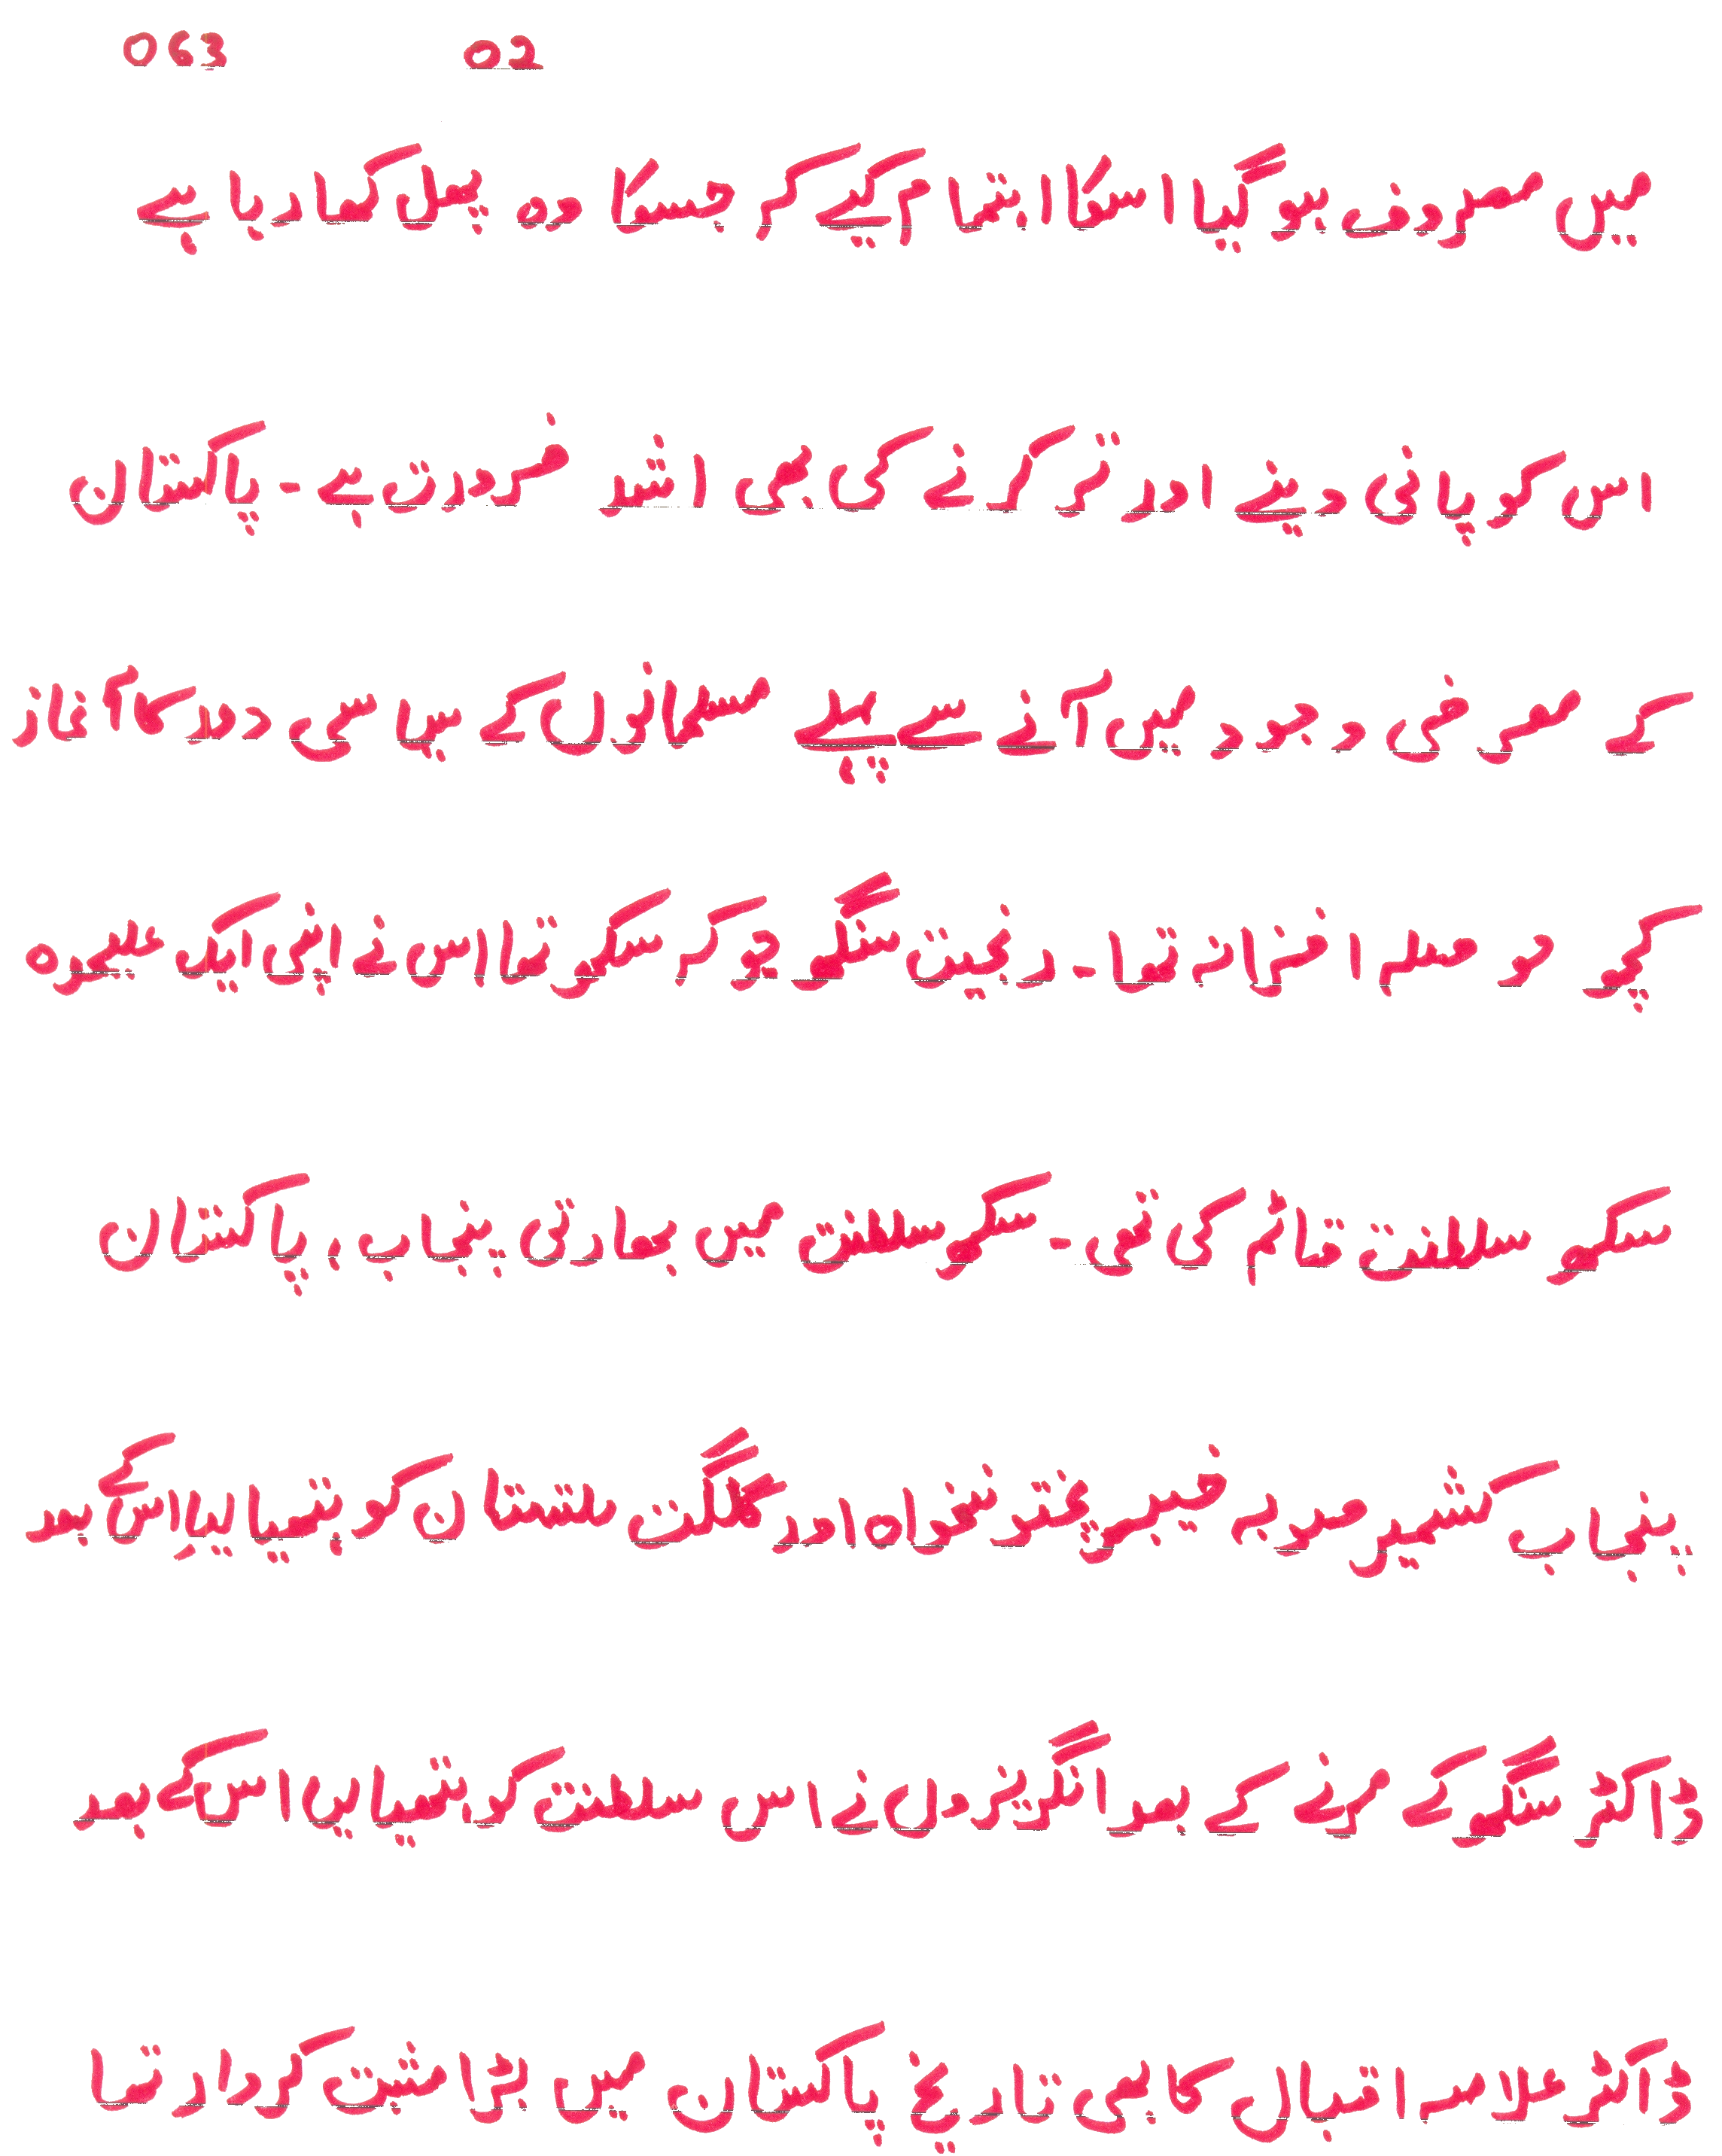 063 02
میں مصروف ہو گیا اسکا اہتمام کیے کہ جسکا وہ پھل کھا رہا ہے
اس کو پانی دینے اور تر کرنے کی بھی اشد ضرورت ہے - پاکستان
کے معرضی وجود میں آنے سے پہلے مسلمانوں کے سیاسی دور کا آغاز
کچھ حوصلہ افزا نہ تھا - رنجیت سنگھ جو کہ سکھ تھا اس نے اپنی ایک علیحدہ
سکھ سلطنت قائم کی تھی - سکھ سلطنت میں بھارتی پنجاب ، پاکستان
پنجاب کشمیر صوبہ خیبر پختونخواہ اور گلگت بلتستان کو ہتھیا لیا اس کے بعد
ڈاکٹر سنگھ کے مرنے کے بعد انگریزوں نے اس سلطنت کو ہتھیا لیا اس کے بعد
ڈاکٹر علامہ اقبال کا بھی تاریخ پاکستان میں بڑا مثبت کردار تھا